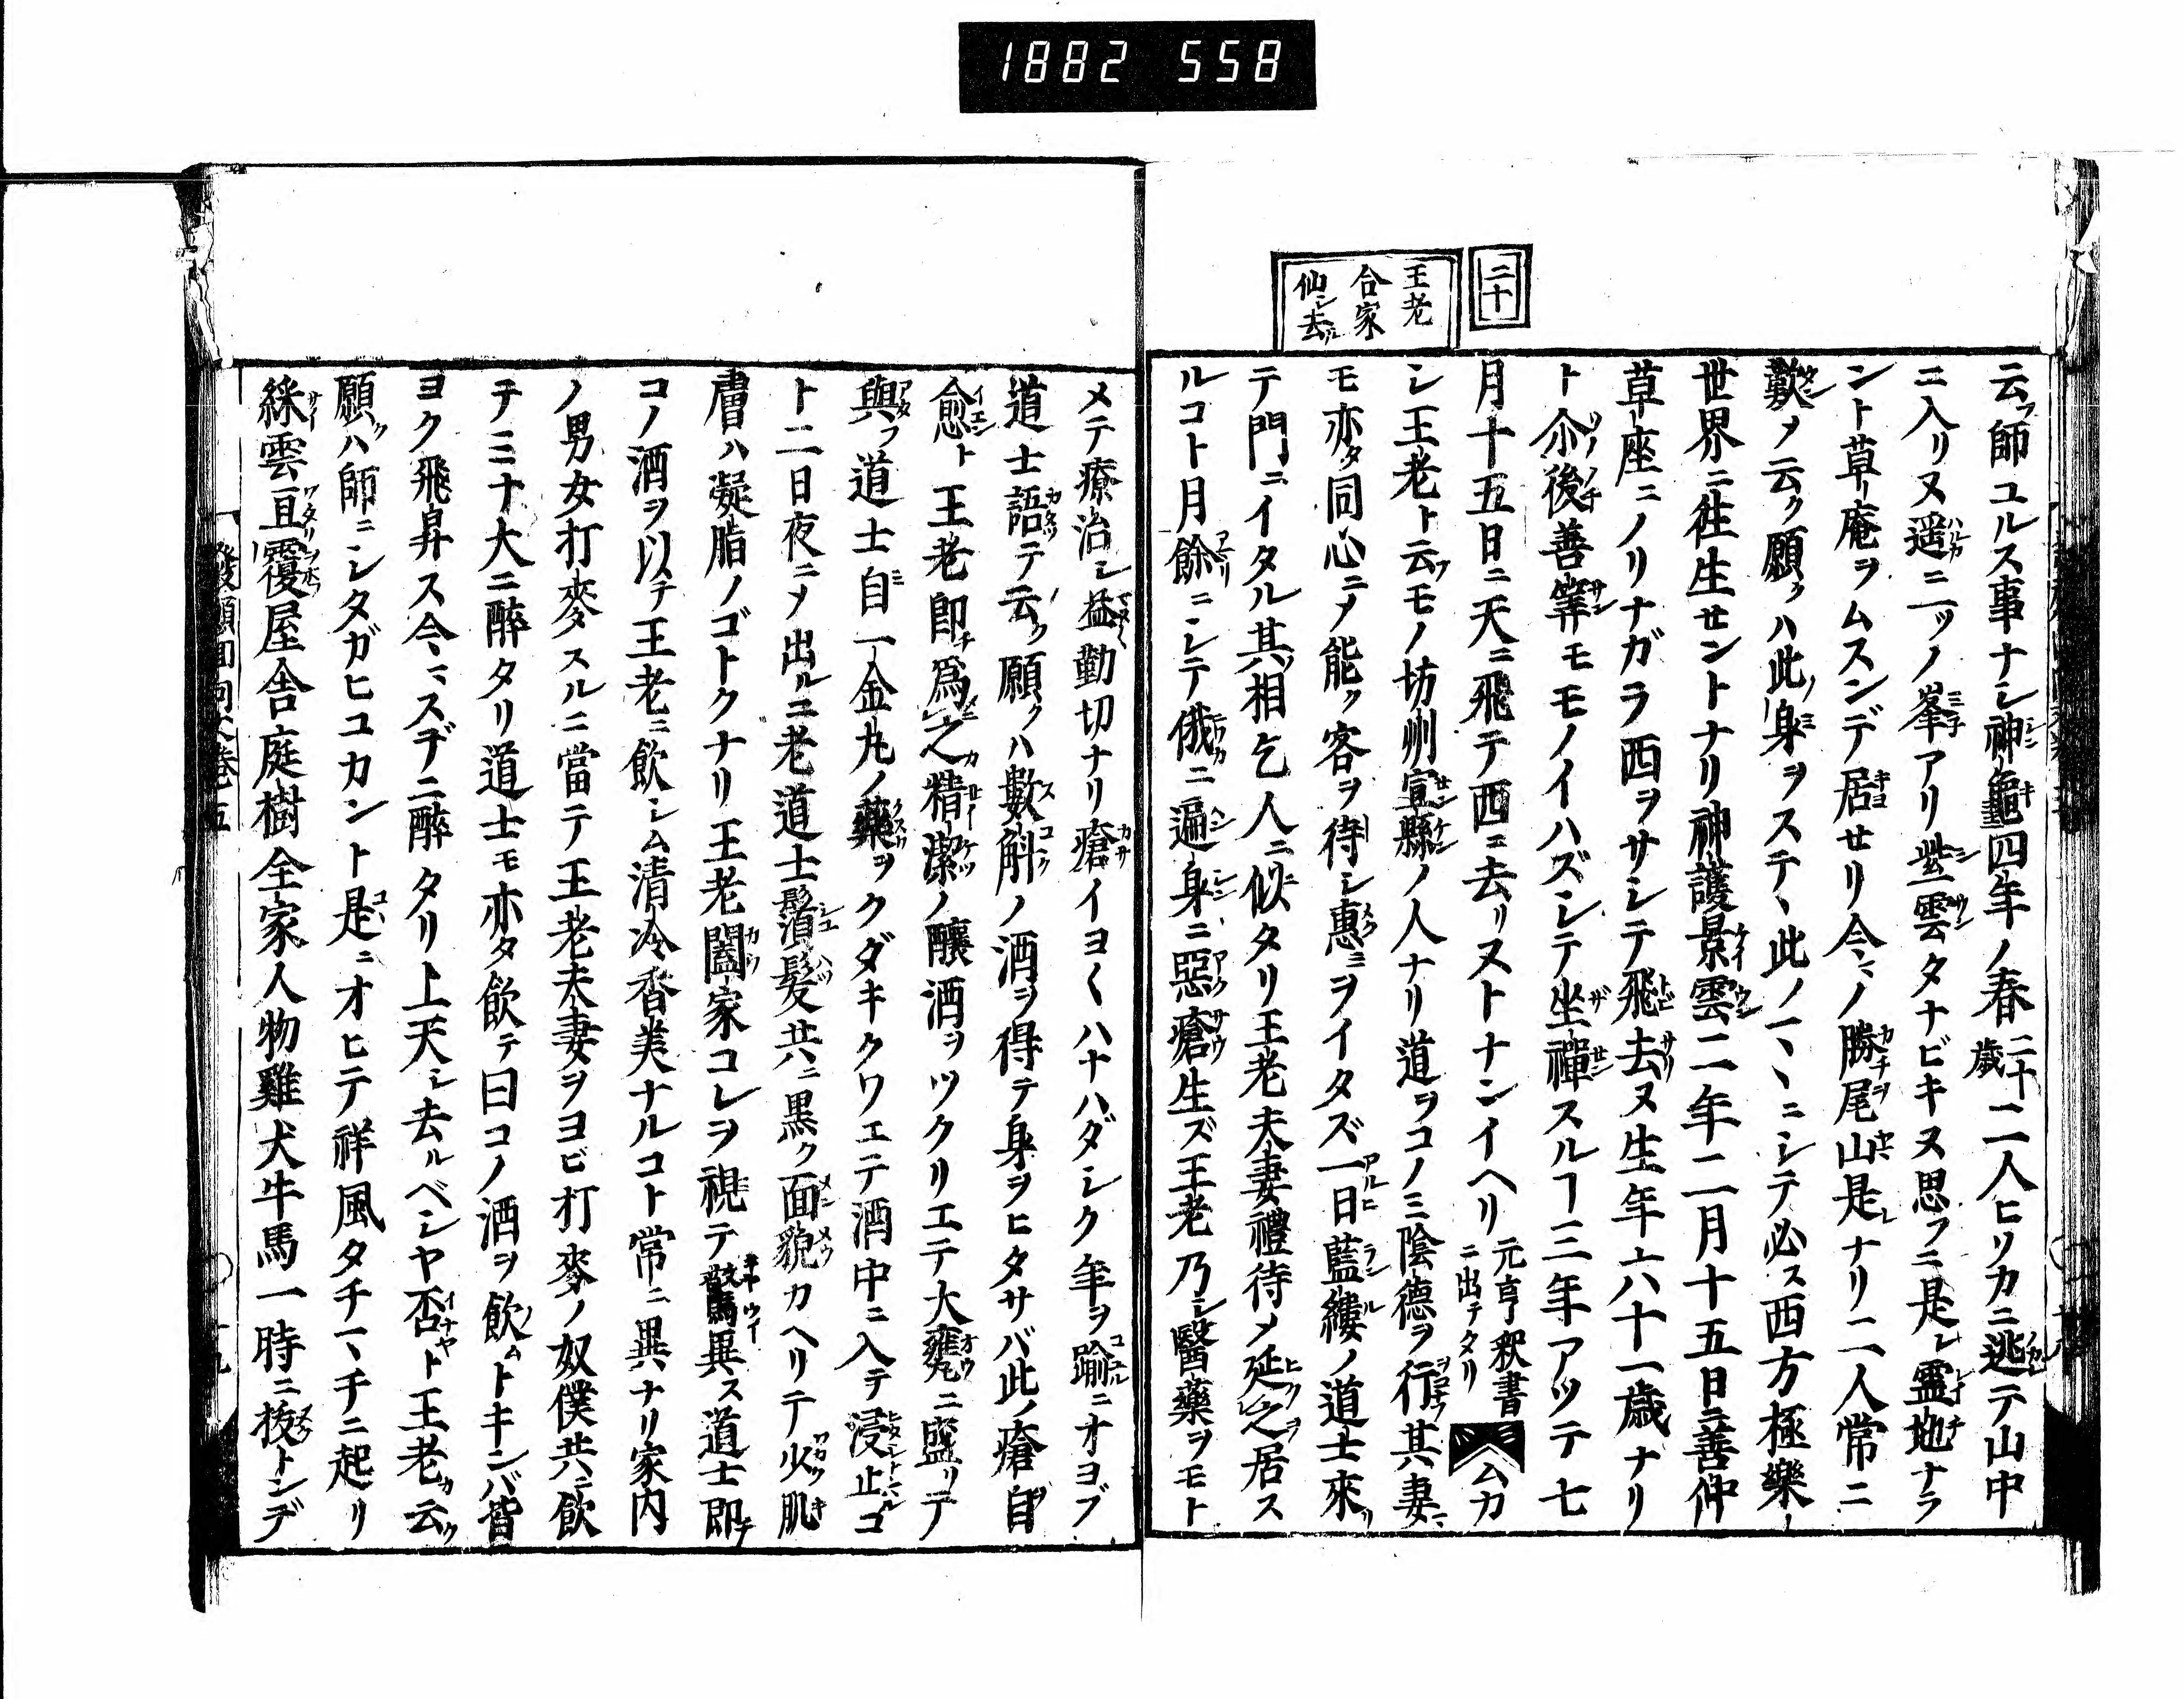 1882 558
二十
王老
合家
仙シ去ル
云フ師ユルス事ナシ神龜四年ノ春二十歳二人ヒソカニ逃テ山中
ニ入リヌ遥ニ二ツノ峯アリ紫雲タナビキヌ思フニ是レ靈地ナラ
ント草庵ヲムスンデ居セリ今ノ勝尾山是レナリ二人常ニ
歎メ云ク願クハ此身ヲステヽ此ノマヽニシテ必ス西方極樂
世界ニ徃生セントナリ神護景雲二年二月十五日ニ善仲
草座ニノリナガラ西ヲサシテ飛去ヌ生年六十一歳ナリ
ト尒後善筭モモノイハズシテ坐禪スルヿ三年アツテ七
月十五日ニ天ニ飛テ西ニ去リヌトナンイヘリ元亨釈書ニ出テタリムカ
シ王老ト云フモノ坊州宣縣ノ人ナリ道ヲコノミ陰德ヲ行フ其妻
モ亦タ同心ニメ能ク客ヲ待シ惠ミヲイタズ一日藍縷ノ道士來リ
テ門ニイタル其相乞人ニ似タリ王老夫妻禮待メ延之居ス
ルコト月餘ニシテ俄ニ遍身ニ惡瘡生ズ王老乃シ醫藥ヲモト
メテ療治シ益勤切ナリ瘡イヨ〱ハナハダシク年ヲ踰ニオヨブ
道士語テ云ク願クハ數斛ノ酒ヲ得テ身ヲヒタサバ此ノ瘡自
愈ト王老即チ爲之精潔ノ釀酒ヲツクリエテ大甕ニ盛リテ
與フ道士自ミ一金丸ノ藥ヲクダキクワエテ酒中ニ入テ浸止コ
ト二日夜ニメ出ルニ老道士鬚髮共ニ黒ク面貌カヘリテ少肌
膚ハ凝脂ノゴトクナリ王老闔家コレヲ視テ驚異ス道士即チ
コノ酒ヲ以テ王老ニ飲シム清冷香美ナルコト常ニ異ナリ家内
ノ男女打麥スルニ當テ王老夫妻ヲヨビ打麥ノ奴僕共ニ飲
テミナ大ニ醉タリ道士モ亦タ飲テ曰コノ酒ヲ飲ムトキンバ皆
ヨク飛昇ス今スデニ醉タリ上天シ去ルベシヤ否ト王老カ云ク
願クハ師ニシタガヒユカント是ニオヒテ祥風タチマチニ起リ
綵雲亘覆屋舎庭樹全家人物雞犬牛馬一時ニ抜トンデ